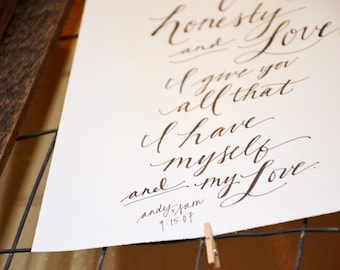 honesty
and Love
I give you
all that
I have
myself
and my Love.
andy + sam
9.15.07